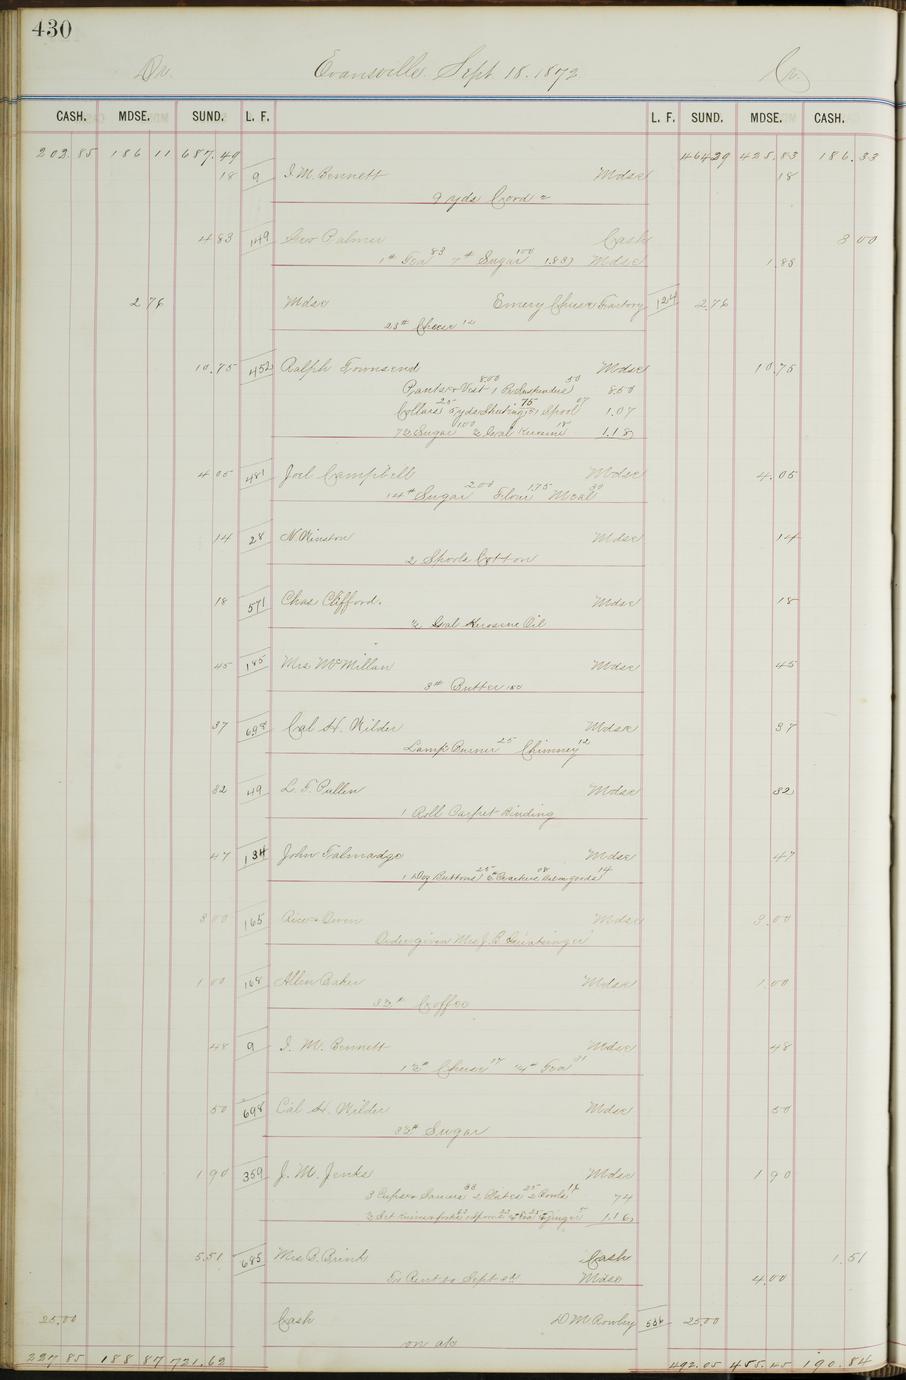 430
Dr. Evansville Sept 18. 1872 Cr.
CASH. MDSE. SUND. L. F. L. F. SUND. MDSE. CASH.
202.85 186 11 687.49 464 29 425.83 186.33
18 9 I. M. Bennett Mdse 18
9 yds Cord 2
4 83 149 Geo Palmer Cash 3 00
1# Tea 83 7# Sugar 100 1.83 Mdse 1.83
2 76 Mdse Emery Cheese Factory 124 2.76
23# Cheese 12
10.75 452 Ralph Townsend Mdse 10.75
Pants & Vest 800 1 Pr Suspenders 50 8.50
Collars 25 5 yds Sheeting 75 Spool 07 1.07
7½ Sugar 100 ½ Gal Kerosine 18 1.18
4 05 481 Joel Campbell Mdse 4.05
14# Sugar 200 Flour 175 Meal 30
14 28 N. Winston Mdse 14
2 Spools Cotton
18 571 Chas Clifford. Mdse 18
½ Gal Kerosine Oil
45 185 Mrs McMillan Mdse 45
3# Butter
37 698 Cal H. Wilder Mdse 37
Lamp Burner 25 Chimney 12
32 49 L. F. Pullen Mdse 32
1 Roll Carpet Binding
47 134 John Talmadge Mdse 47
1 Doz Buttons 25 Crackers 08 14
3 00 165 Rice & Owen Mdse 3.00
Order given Mrs J. B.
1 00 168 Allen Baker Mdse 1.00
3½# Coffee
48 9 I. M. Bennett Mdse 48
1½# Cheese 17 ¼# Tea 31
50 698 Cal H. Wilder Mdse 50
3½# Sugar
1 90 359 J. M. Jenks Mdse 1 90
3 Cups & Saucers 33 2 Plates 25 2 Bowls 16 74
½ Set Knives & forks Spoons Tea Ginger 1.16
5.51 685 Mrs B. Brink Cash 1.51
To Rent to Sept Mdse 4.00
25.00 Cash D. M. Rowley 556 25.00
on a/c
227.85 188.87 721.62 492.05 455.45 190.84